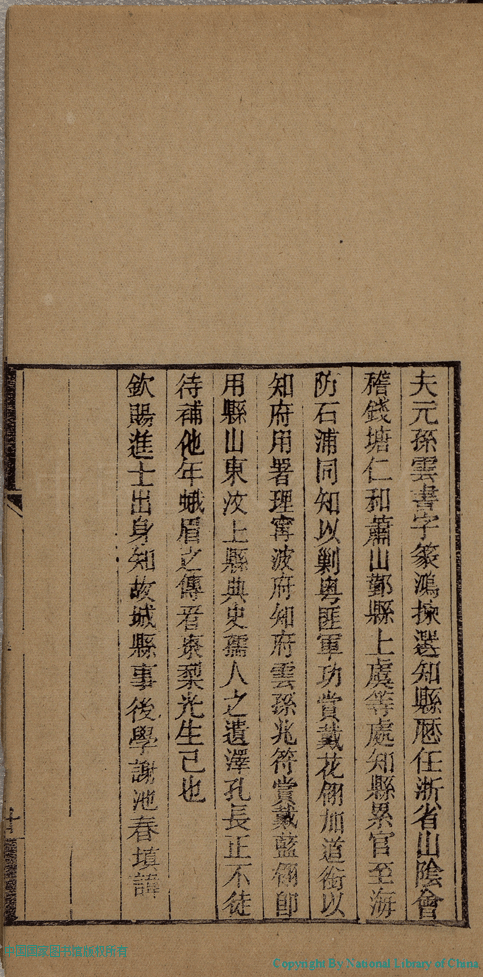 夫元孫雲書字篆鴻揀選知縣歷任浙省山陰會
稽錢塘仁和蕭山鄞縣上虞等處知縣累官至海
防石浦同知以剿粵匪軍功賞戴花翎加道銜以
知府用署理甯波府知府雲孫兆符賞戴藍翎卽
用縣山東汶上縣典史孺人之遺澤孔長正不徒
待補他年蛾眉之傳者梨光生已也
欽賜進士出身知故城縣事後學謝池春填諱
十
中国国家图书馆版权所有
Copyright By National Library of China